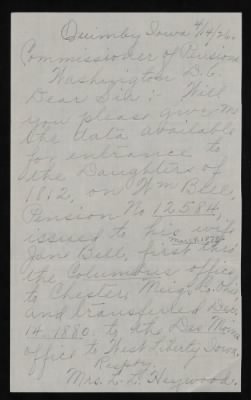 Quimby Iowa 4/14/26.
Commissioner of Pensions
Washington D.C.
Dear Sir: Will
you please give me
the data available
for entrance to
the Daughters of
1812, on Wm Bell,
Pension No 12584,
issued to his wife
Jane Bell, first thru
the Columbus office
to Chester, Meigs Co. Ohio
and transferred Dec.
14, 1880. to the Des Moines
office to West Liberty Iowa.
Respy.
Mrs. L. L. Heywood.